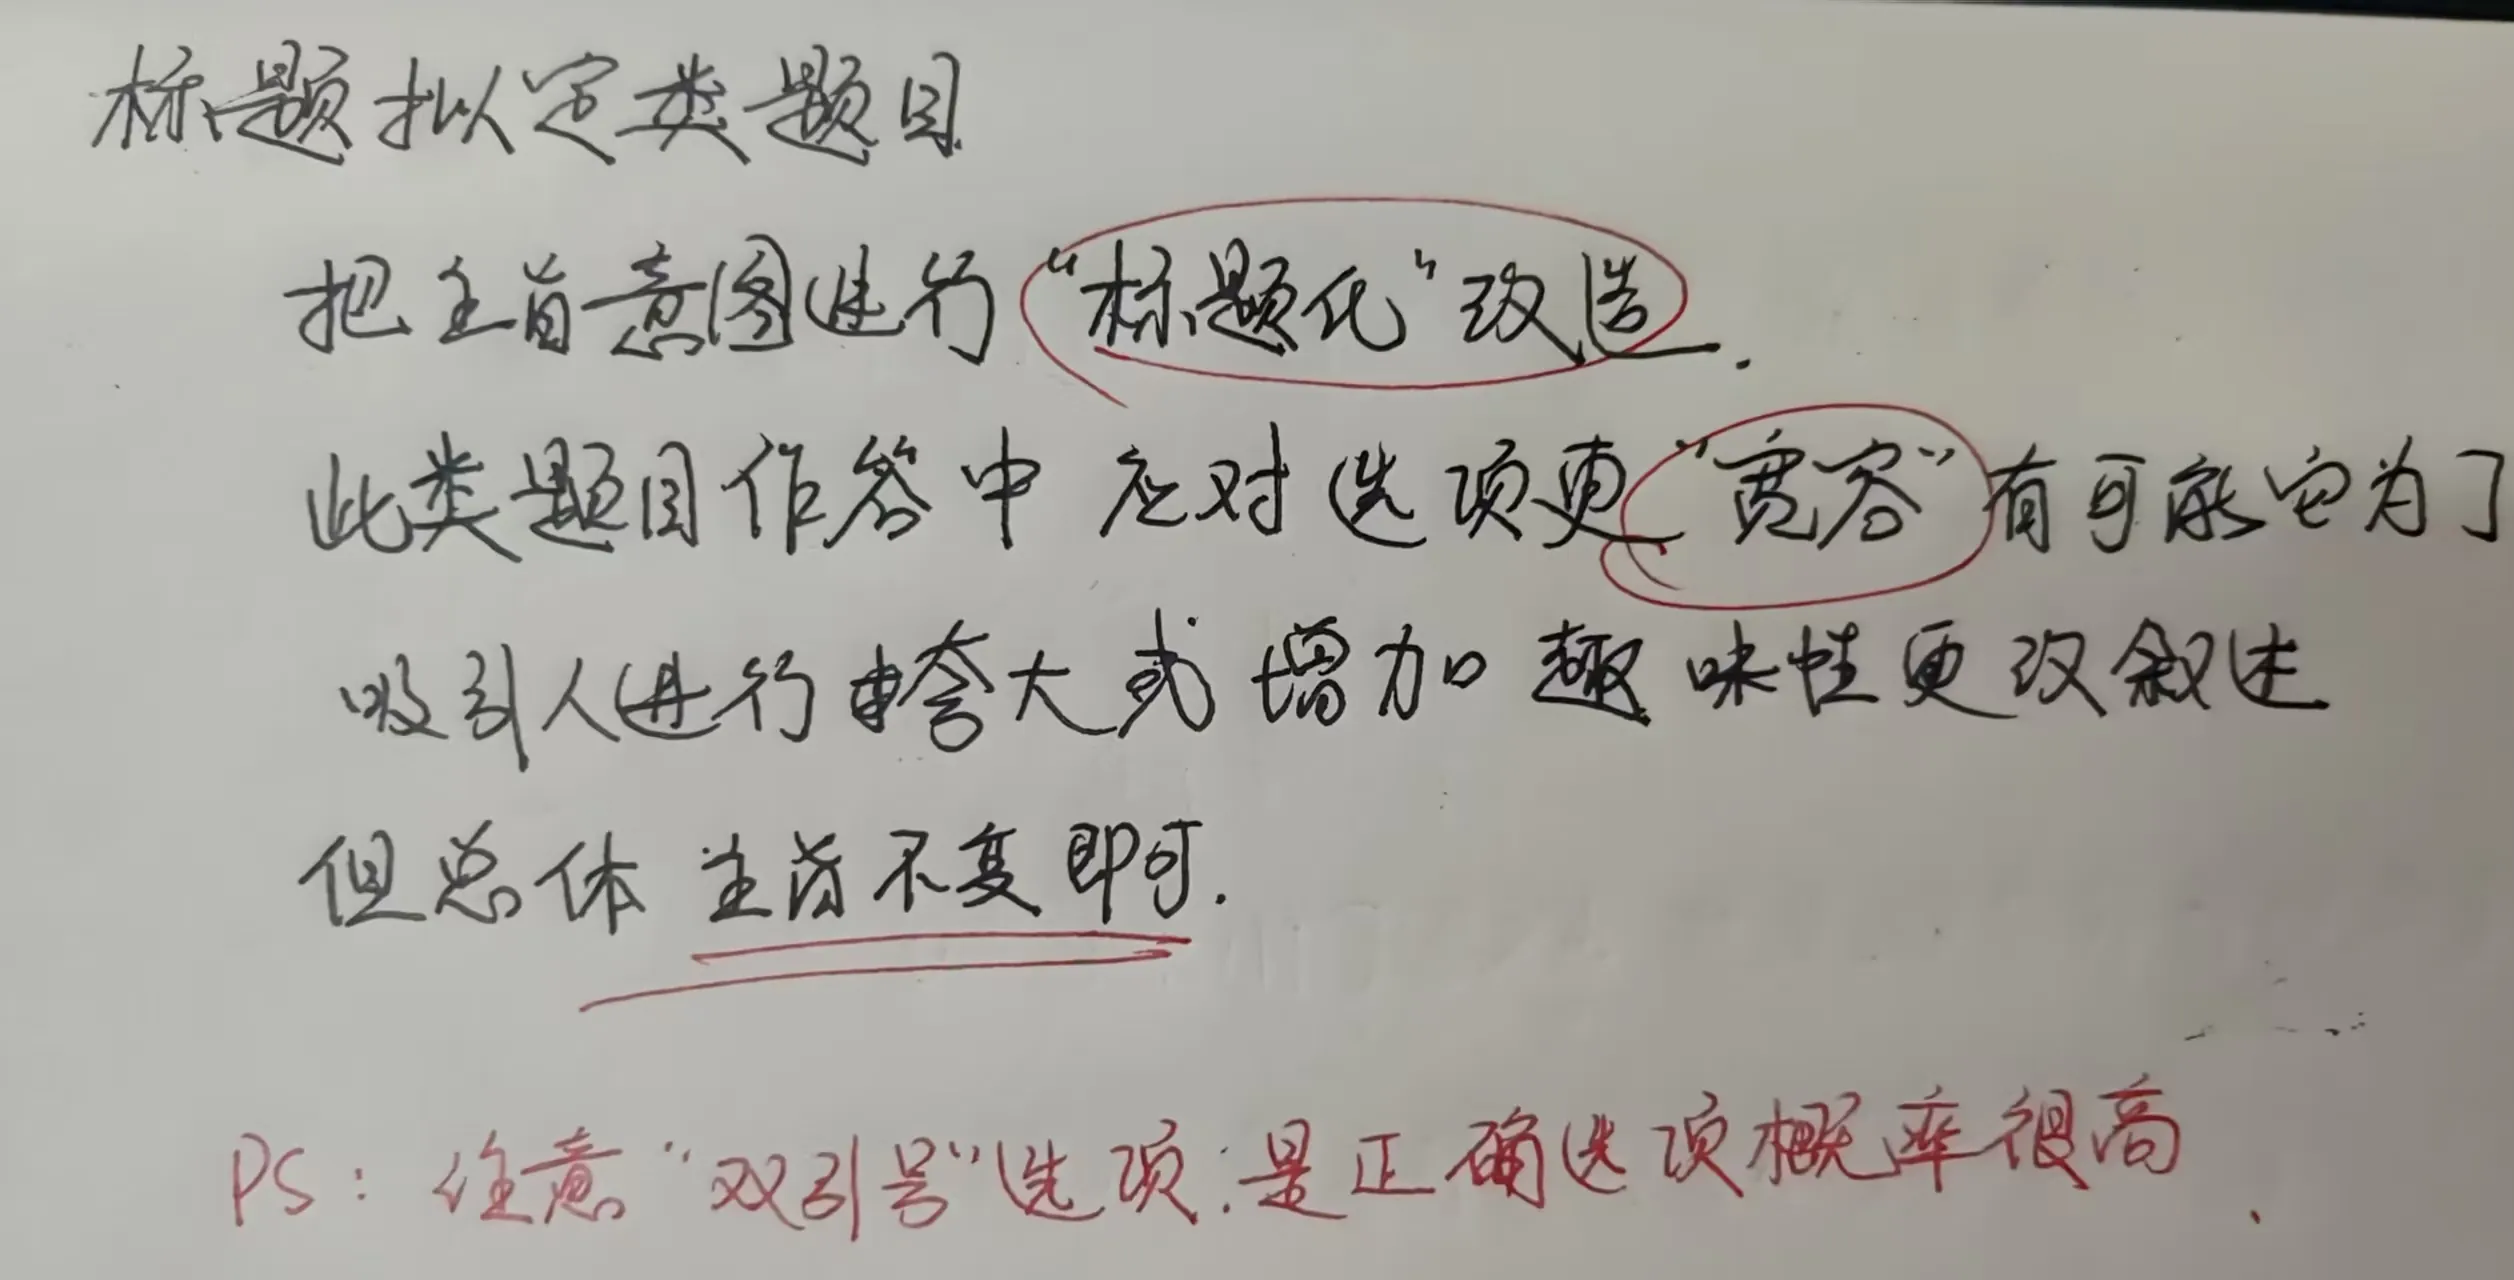 标题拟定类题目
把主旨意图进行“标题化”改造.
此类题目作答中 应对选项更“宽容”有可能它为了
吸引人进行夸大或增加趣味性更改叙述
但总体 主旨不变即可.
PS：注意“双引号”选项:是正确选项概率很高.